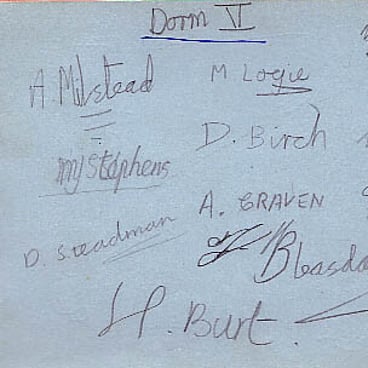 Dorm V
A. Milstead
M Logie
D. Birch
MJ Stephens
A. GRAVEN
D. Steadman
Bleasda
H. Burt.